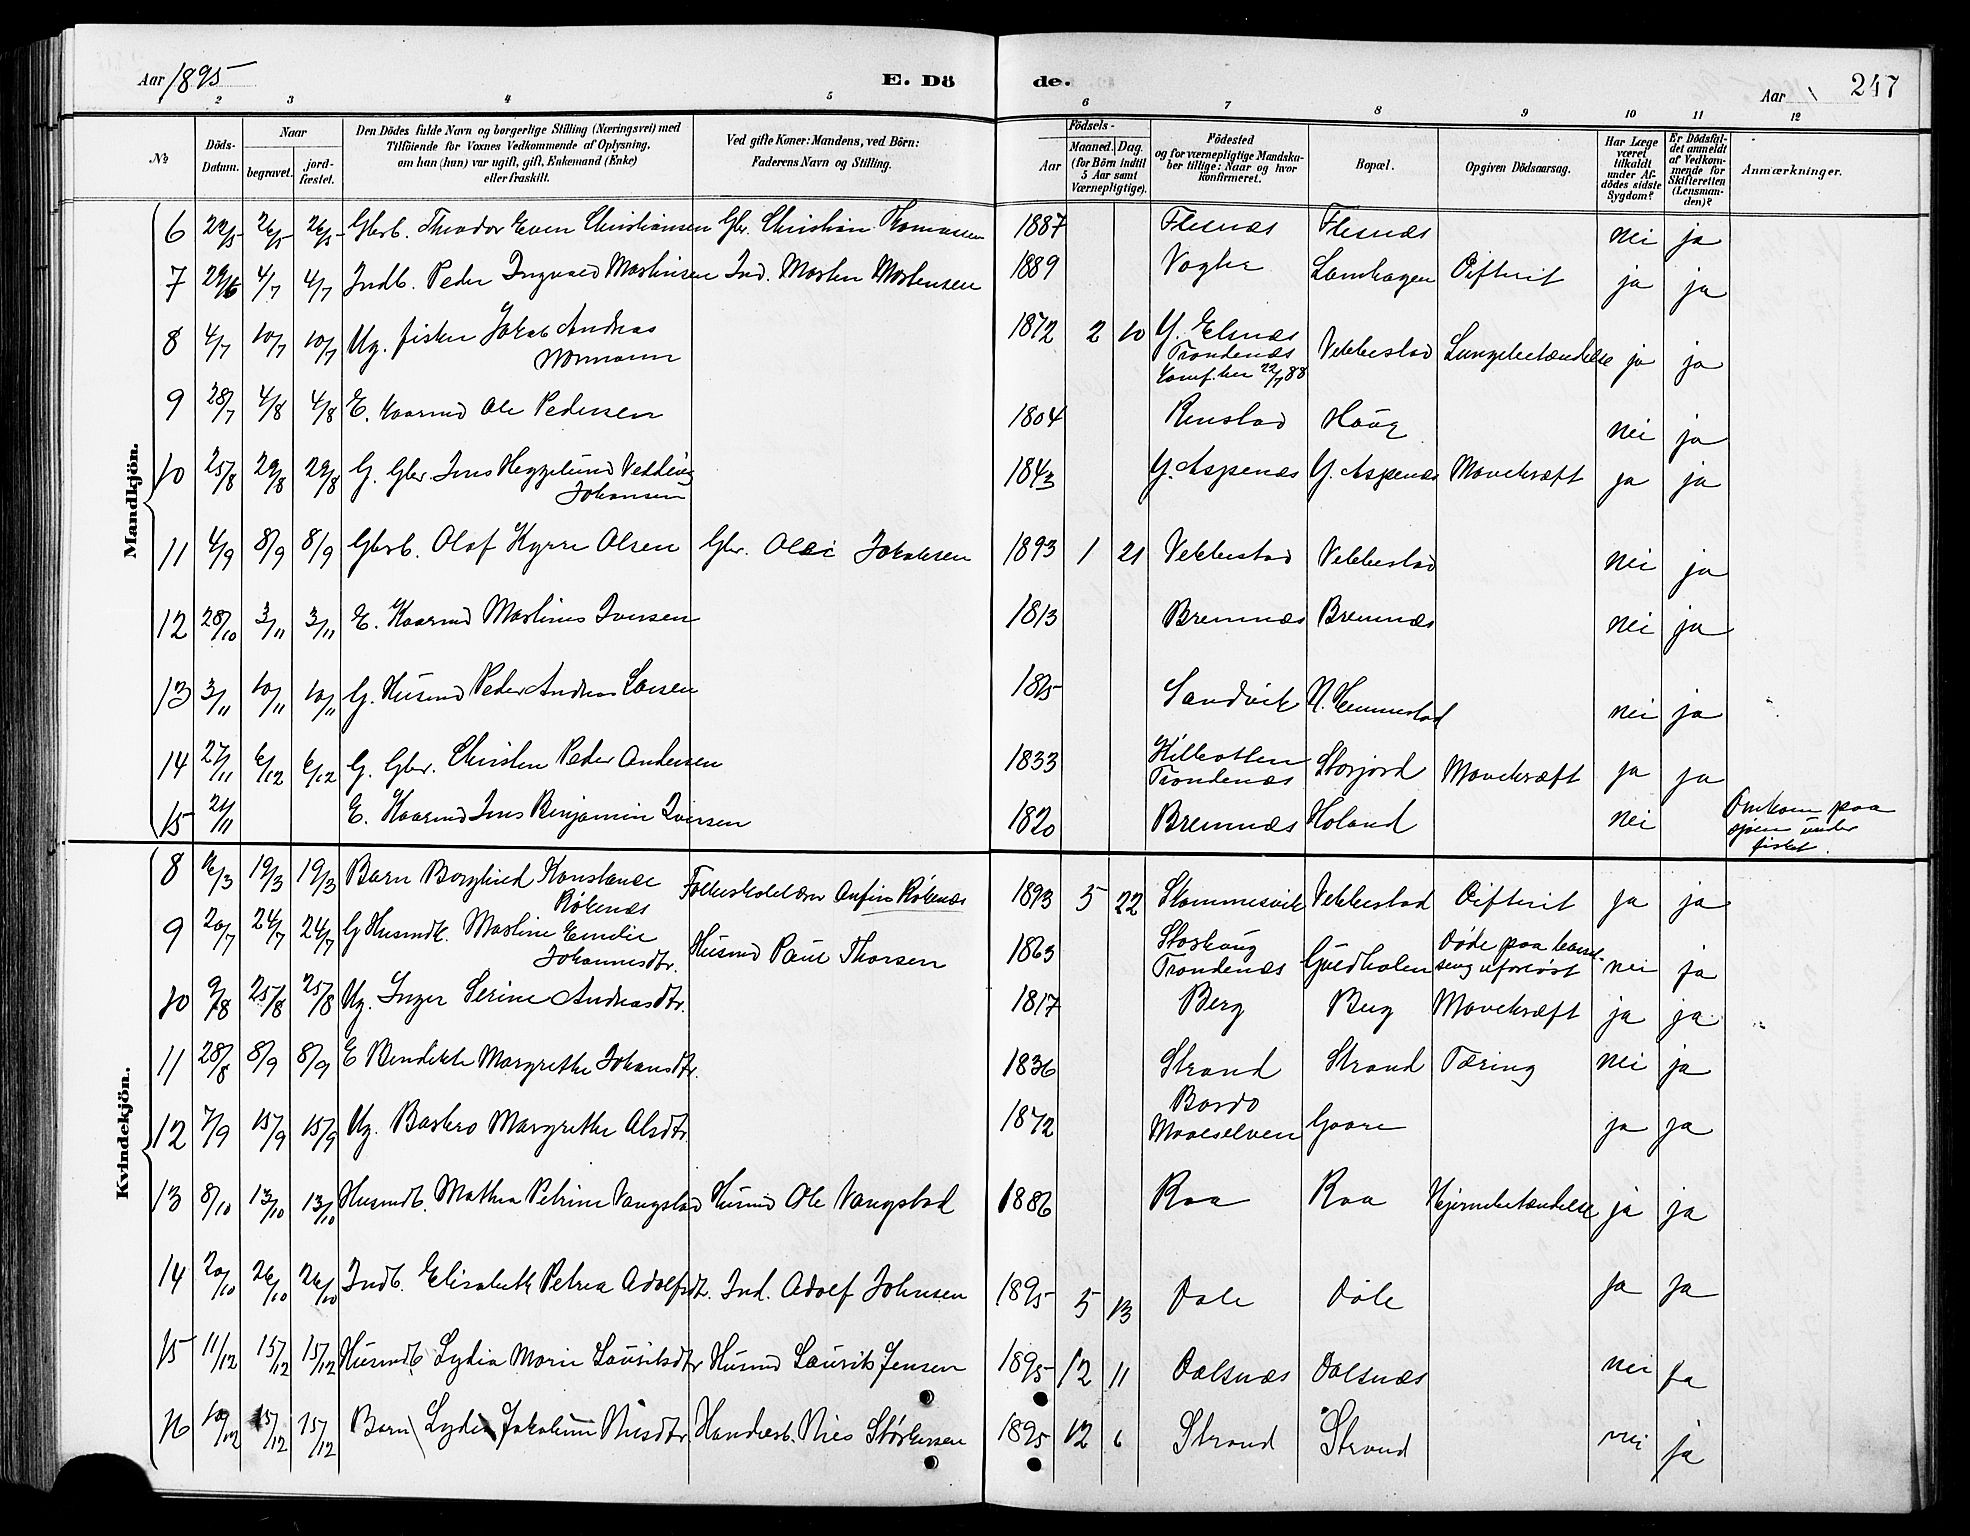 Aar 1895 E. Dö de. Aar 247
1 2 3 4 5 6 7 8 9 10 11 12
№ Döds-Datum. Naar begravet. jordfæstet. Den Dödes fulde Navn og borgerlige Stilling (Næringsvei) med Tilföiende for Voxnes Vedkommende af Oplysning, om han (hun) var ugift, gift, Enkemand (Enke) eller fraskilt. Ved gifte Koner: Mandens, ved Börn: Faderens Navn og Stilling. Födsels- Aar Maaned. Dag. (for Börn indtil 5 Aar samt Værnepligtige). Födested og for værnepligtige Mandskaber tillige: Naar og hvor konfirmeret. Bopæl. Opgiven Dödsaarsag. Har Læge været tilkaldt under Afdödes sidste Sygdom? Er Dödsfaldet anmeldt af Vedkommende for Skifteretten (Lensmanden)? Anmærkninger.
Mandkjön.
6 22/5 26/5 26/5 Gbrb. Theodor Even Christiansen Gbr. Christian Thomassen 1887 Flesnæs Flesnæs nei ja
7 29/6 4/7 4/7 Indb. Peder Ingvald Martinsen Ind. Morten Mortensen 1889 Vaghe Lamhagen Difterit ja ja
8 4/7 10/7 10/7 Ug. fisker Jakob Andreas
Normann 1872 2 10 Y. Elsnæs
Trondenæs Vebbestad Lungebetændelse ja ja
Konf. her 22/7 88
9 28/7 4/8 4/8 E. Kaarmd Ole Pedersen 1804 Renstad Haug nei ja
10 25/8 29/8 29/8 G. Gbr. Jens Heggelund Vedding
Johansen 1843 Y. Aspenæs Y. Aspenæs Mavekræft ja ja
11 4/9 8/9 8/9 Gbrb. Olaf Kyrre Olsen Gbr. Olai Jakobsen 1893 1 21 Vebbestad Vebbestad nei ja
12 28/10 3/11 3/11 E. Kaarmd Martinus Iversen 1813 Bremnæs Bremnæs nei ja
13 3/11 10/11 10/11 G. Husmd Peder Andreas Larsen Sandvik N. Hemmestad nei ja
14 27/11 6/12 6/12 G. Gbr. Christen Peder Andersen 1833 Kilbotten
Trondenæs Storjord Mavekræft ja ja
15 21/11 E. Kaarmd Jens Benjamin Iversen 1820 Bremnæs Holand nei Omkom paa
sjøen under
fisket.
Kvindekjön.
8 16/3 19/3 19/3 Barn Borghild Konstanse
Røkenæs Folkeskolelærer Anfin Røkenæs 1893 5 22 Stammesvik Vebbestad Difterit ja ja
9 20/7 24/7 24/7 G Husmdk. Martine Emilie
Johannesdtr. Husmd Paul Thorsen 1863 Storhaug
Trondenæs Guldholen Døde paa barsel-
seng uforløst nei ja
10 9/8 25/8 25/8 Ug. Inger Serine Andreasdtr. 1817 Berg Berg Mavekræft ja ja
11 28/8 8/9 8/9 E Bendikte Margrethe Johansdtr. 1836 Strand Strand Tæring nei ja
12 7/9 15/9 15/9 Ug. Barbro Margrethe Olsdtr. 1872 Bardo
Maaelselven Gaare ja ja
13 8/10 13/10 13/10 Husmdb. Mathea Petrine Vangstad Husmd Ole Vangstad 1886 Raa Raa Hjernebetændelse ja ja
14 20/10 26/10 26/10 Indb. Elisabeth Petrea Adolfsdtr. Ind. Adolf Johnsen 1895 5 13 Dale Dale ja ja
15 11/12 15/12 15/12 Husmdb Lydia Marie Lauritsdtr Husmd Laurits Jensen 1895 12 11 Dalsnæs Dalsnæs nei ja
16 10/12 15/12 15/12 Barn Lydia Jakobine Nilsdtr Handelsb. Nils Størkersen 1895 12 6 Strand Strand nei ja